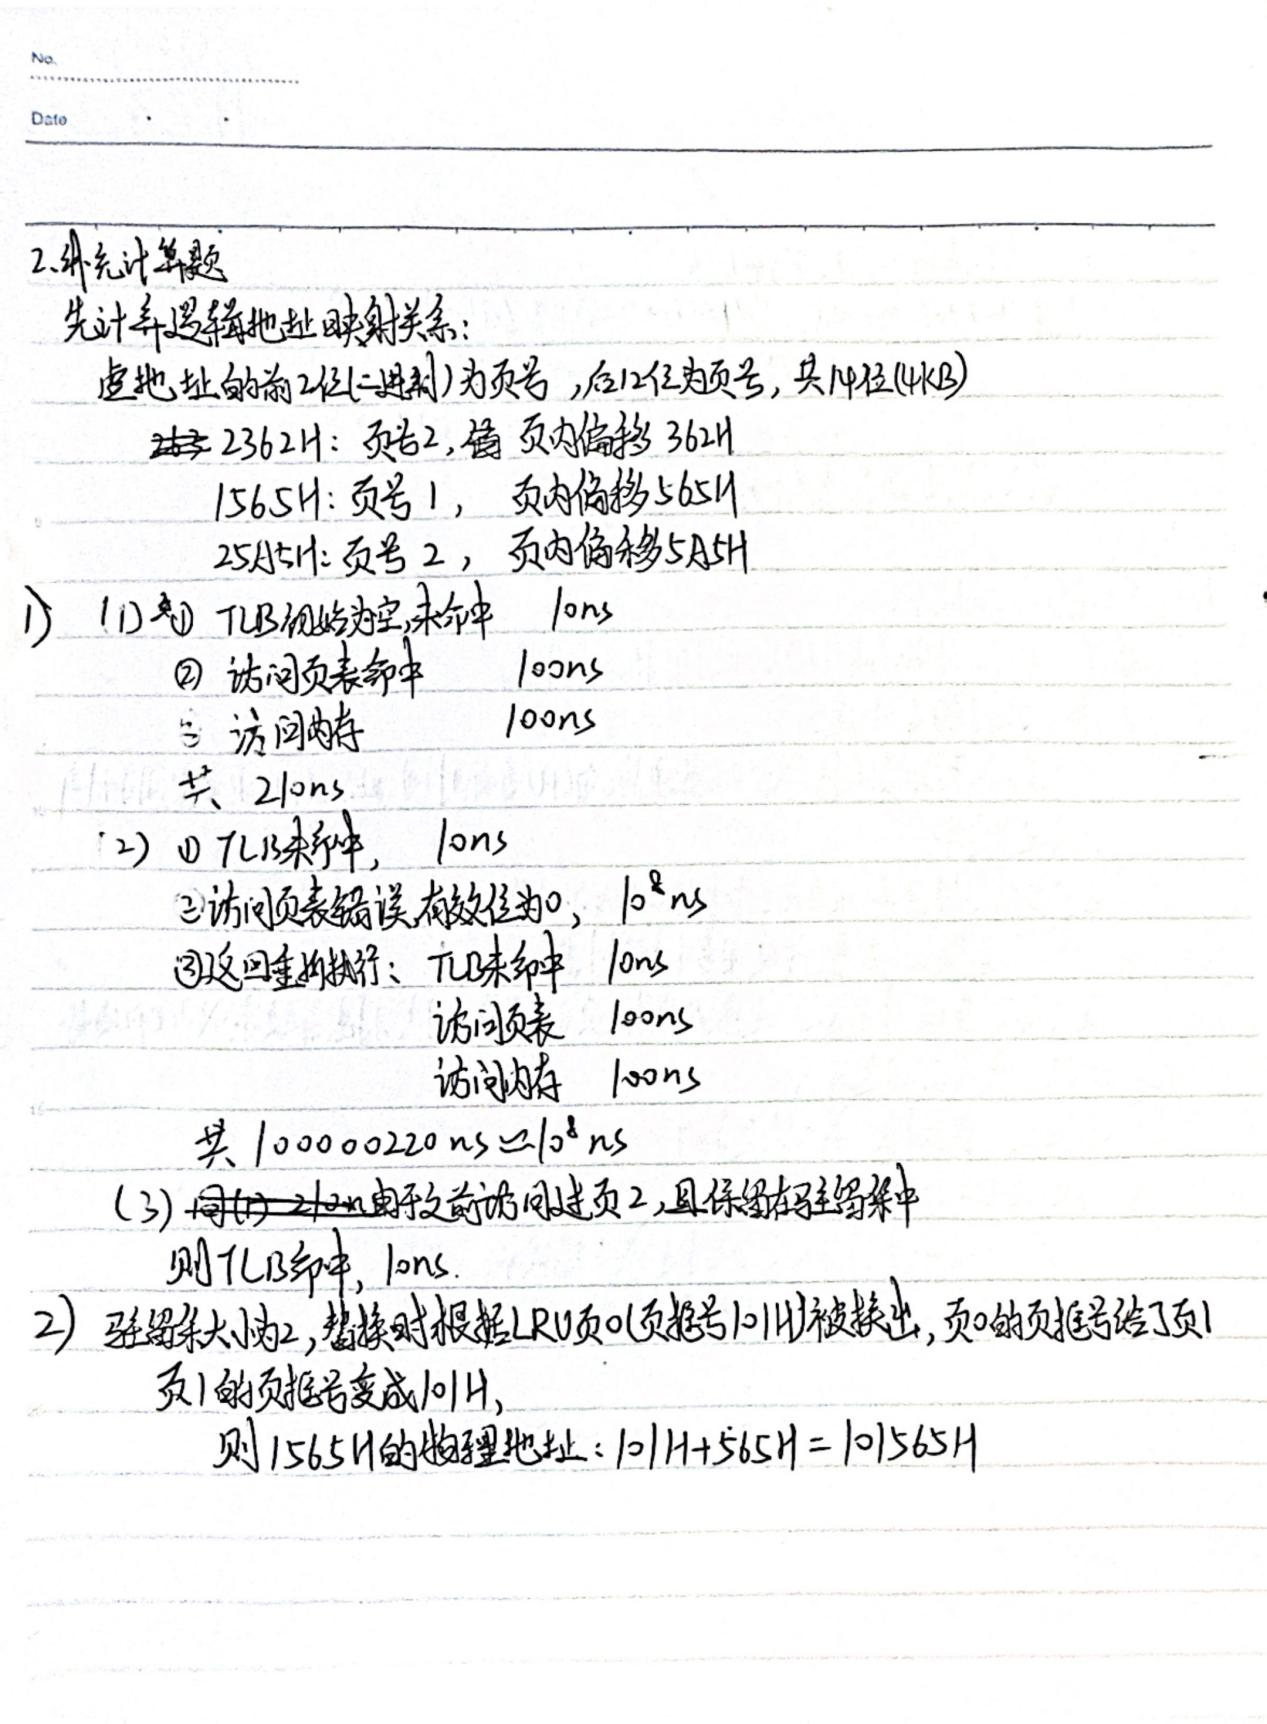 No.
Date
2.补充计算题
先计算逻辑地址映射关系:
虚地址的前2位(二进制)为页号,后12位为页号,共14位(4KB)
2362H: 页号2, 页内偏移362H
1565H: 页号1, 页内偏移565H
25A5H: 页号2, 页内偏移5A5H
1) (1) ① TLB初始为空,未命中 10ns
② 访问页表命中 100ns
③ 访问内存 100ns
共 210ns
(2) ① TLB未命中, 10ns
②访问页表错误,有效位为0, 10⁸ns
③返回重新执行: TLB未命中 10ns
访问页表 100ns
访问内存 100ns
共 100000220ns≈10⁸ns
(3) 同(1) 210n由于之前访问过页2,且保留在驻留集中
则TLB命中, 10ns.
2) 驻留集大小为2,替换时根据LRU页0(页框号101H)被换出,页0的页框号给了页1
页1的页框号变成101H,
则1565H的物理地址: 101H+565H=101565H